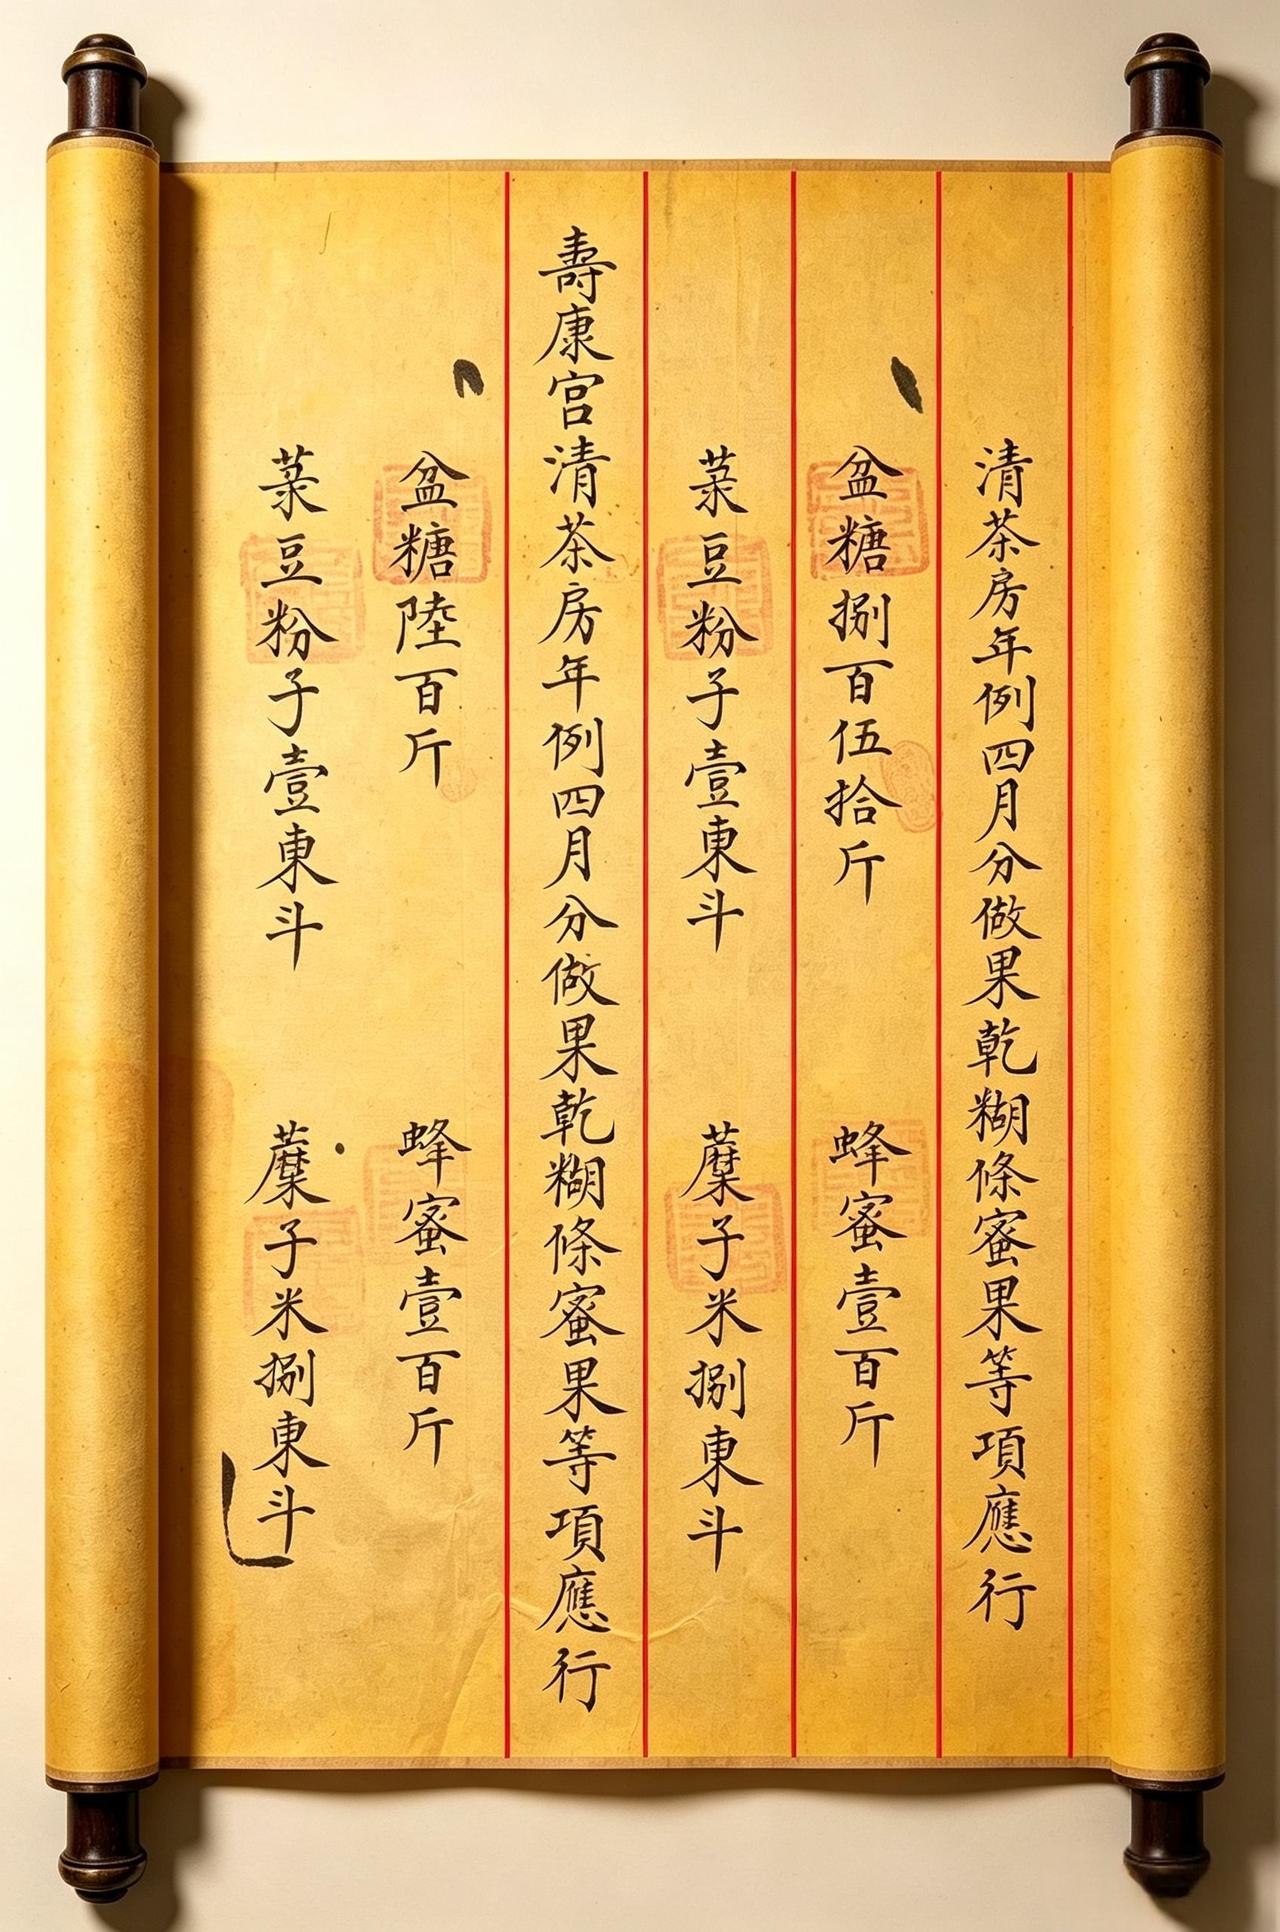 清茶房年例四月分做果乾糊條蜜果等項應行
盆糖捌百伍拾斤 蜂蜜壹百斤
菉豆粉子壹東斗 䕷子米捌東斗
壽康宮清茶房年例四月分做果乾糊條蜜果等項應行
盆糖陸百斤 蜂蜜壹百斤
菉豆粉子壹東斗 䕷子米捌東斗